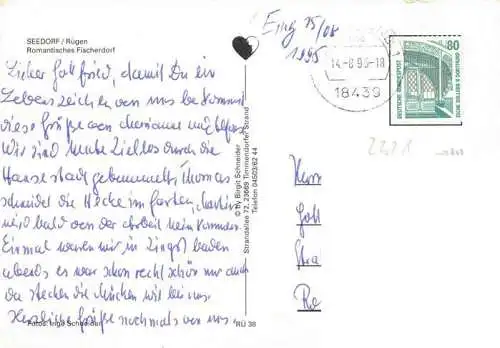 SEEDORF / Rügen
Romantisches Fischerdorf
Lieber Gottfried, damit Du ein
Lebenszeichen von uns bekommst
diese Grüße von
Wir sind heute ziellos durch die
Hansestadt gebummelt, Thomas
schneidet die Hecke im Garten,
wird bald von der Arbeit heim kommen.
Einmal waren wir in Zingst baden
abends es war schon recht schön nur auch
da stecken die Mücken wie bei uns.
Herzliche Grüße nochmals von uns.
Fotos: Ingo Schneider
RÜ 38
© by Birgit Schneider
Strandallee 72, 23669 Timmendorfer Strand
Telefon 04503/62 44
Eing 15/08
1995
14.-8.95-18
18439
80
DEUTSCHE BUNDESPOST
ZECHE ZOLLERN II DORTMUND
Herr
Gott
Stra
Ro